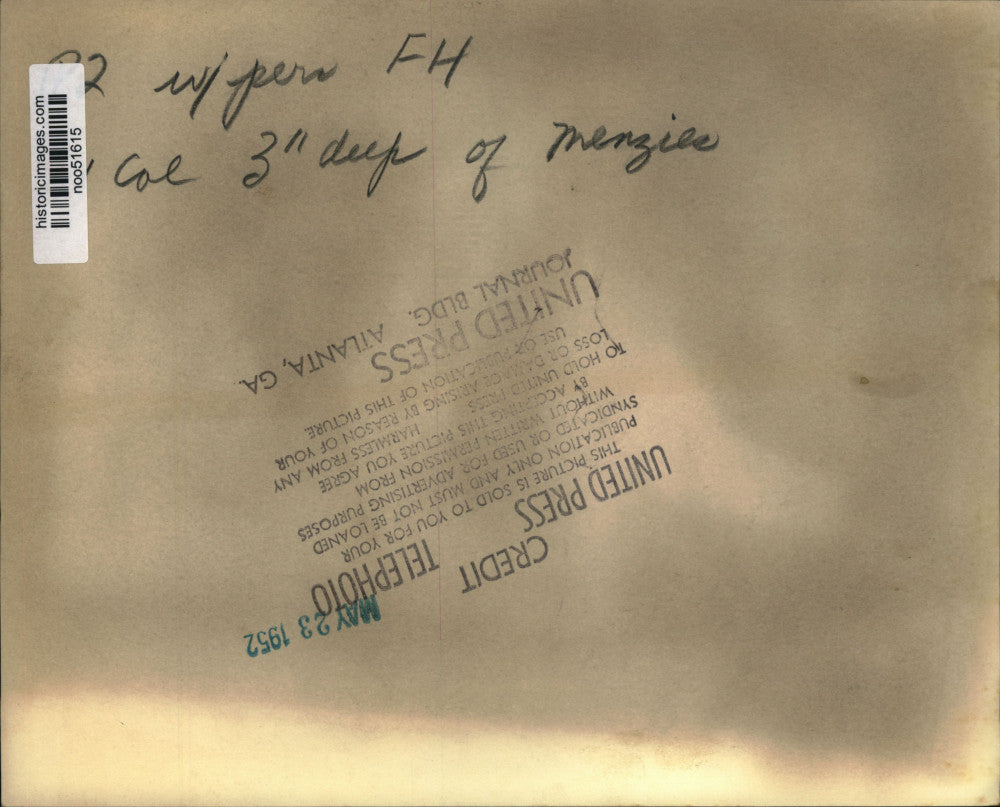 historicimages.com
noo51615
2 w/ pers FH
Col 3" deep of Menzies
MAY 23 1952
CREDIT
UNITED PRESS TELEPHOTO
THIS PICTURE IS SOLD TO YOU FOR YOUR
PUBLICATION ONLY AND MUST NOT BE LOANED
SYNDICATED OR USED FOR ADVERTISING PURPOSES
WITHOUT WRITTEN PERMISSION FROM
BY ACCEPTING THIS PICTURE YOU AGREE
TO HOLD UNITED PRESS HARMLESS FROM ANY
LOSS OR DAMAGE ARISING BY REASON OF YOUR
USE OR PUBLICATION OF THIS PICTURE.
UNITED PRESS
JOURNAL BLDG. ATLANTA, GA.